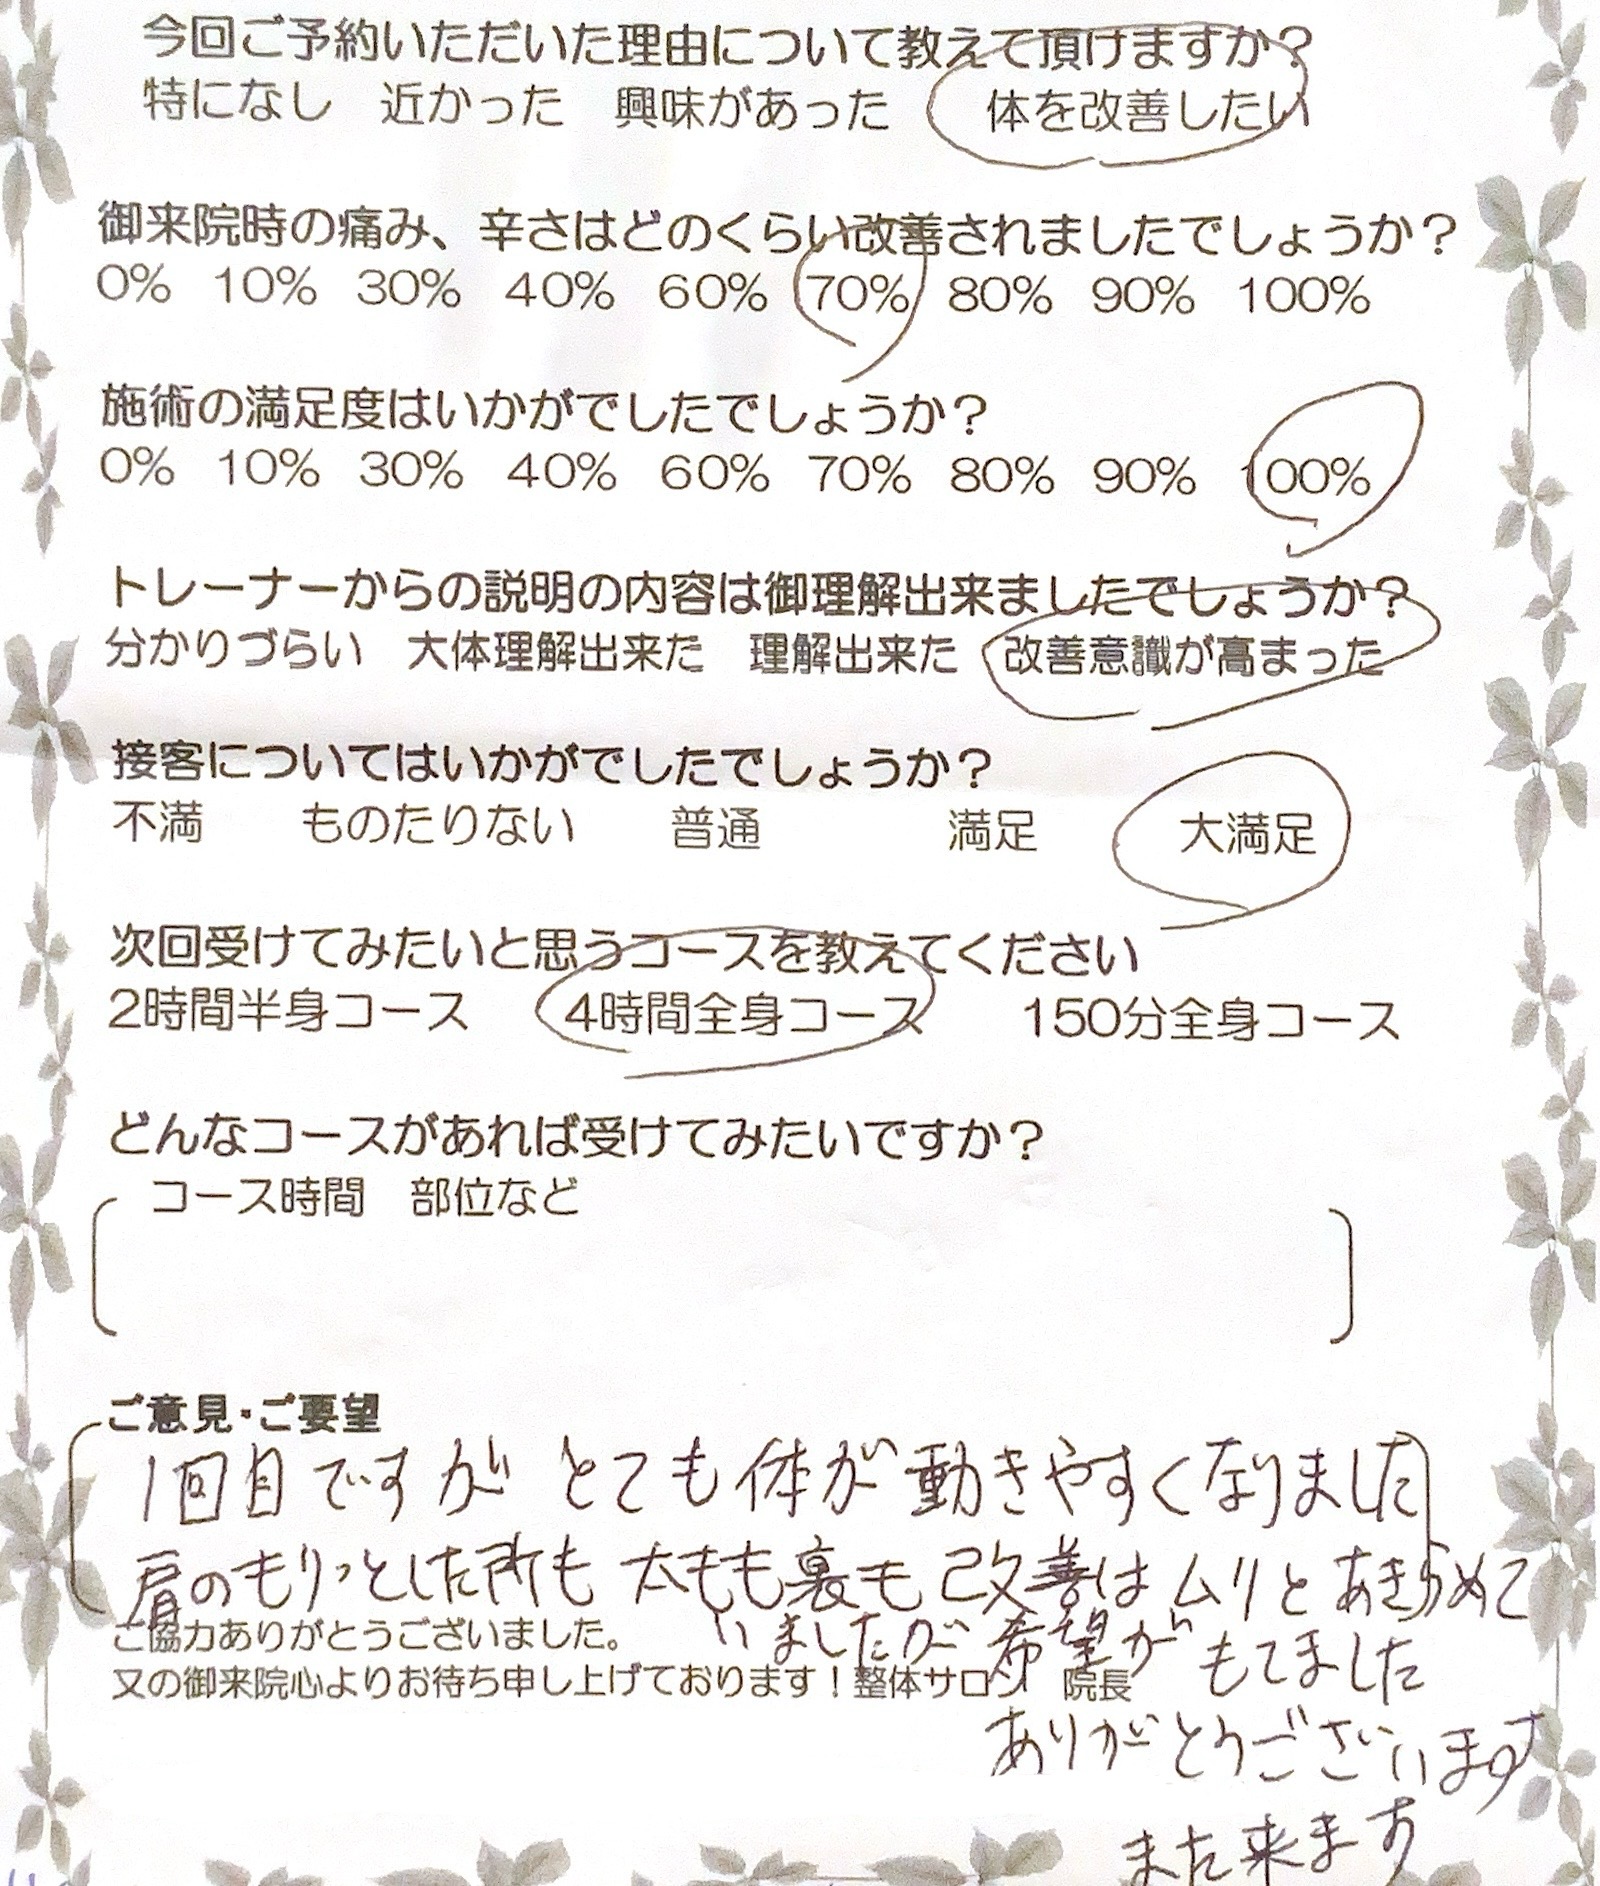 今回ご予約いただいた理由について教えて頂けますか？
特になし　近かった　興味があった　体を改善したい
御来院時の痛み、辛さはどのくらい改善されましたでしょうか？
0%　10%　30%　40%　60%　70%　80%　90%　100%
施術の満足度はいかがでしたでしょうか？
0%　10%　30%　40%　60%　70%　80%　90%　100%
トレーナーからの説明の内容は御理解出来ましたでしょうか？
分かりづらい　大体理解出来た　理解出来た　改善意識が高まった
接客についてはいかがでしたでしょうか？
不満　ものたりない　普通　満足　大満足
次回受けてみたいと思うコースを教えてください
2時間半身コース　4時間全身コース　150分全身コース
どんなコースがあれば受けてみたいですか？
コース時間　部位など
ご意見・ご要望
1回目ですが とても体が動きやすくなりました
肩のもりっとした所も 太もも裏も 改善は ムリと あきらめて
いましたが 希望が もてました
ご協力ありがとうございました。
又の御来院心よりお待ち申し上げております！整体サロン　院長
ありがとうございます
また来ます